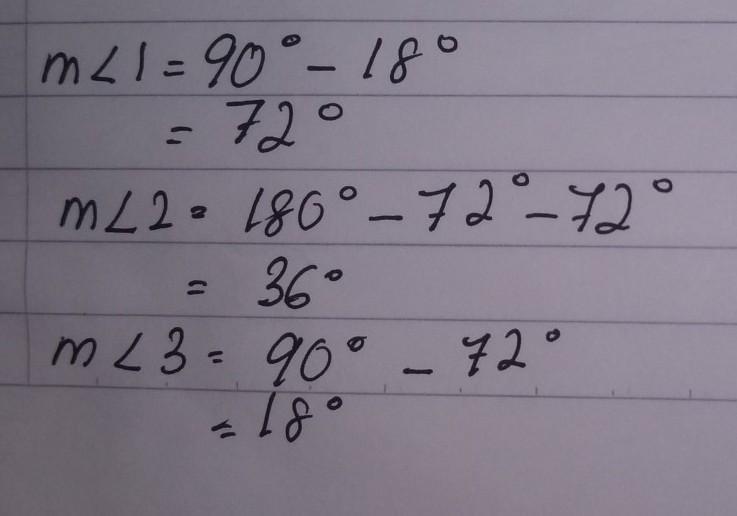 m∠1 = 90° - 18°
= 72°
m∠2 = 180° - 72° - 72°
= 36°
m∠3 = 90° - 72°
= 18°